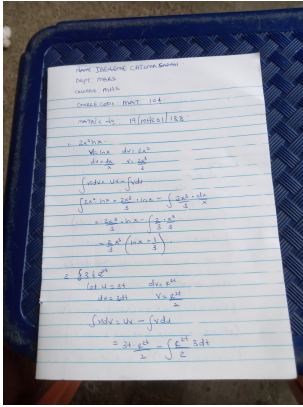 DEPT: MBBS
COURSE: MHS
COURSE CODE: MAT 104
MATRIC NO: 19/MHS01/138
1. 2x² ln x
u = ln x dv = 2x²
du = dx/x v = 2x³/3
∫udv = uv - ∫vdu
∫2x² ln x = 2x³/3 · ln x - ∫2x³/3 · dx/x
= 2x³/3 · ln x -
= 2/3 x³ (ln x - 1/3)
2. ∫3t e²ᵗ
let u = 3t dv = e²ᵗ
du = 3dt v = e²ᵗ/2
∫udv = uv - ∫vdu
= 3t e²ᵗ/2 - ∫e²ᵗ/2 3dt